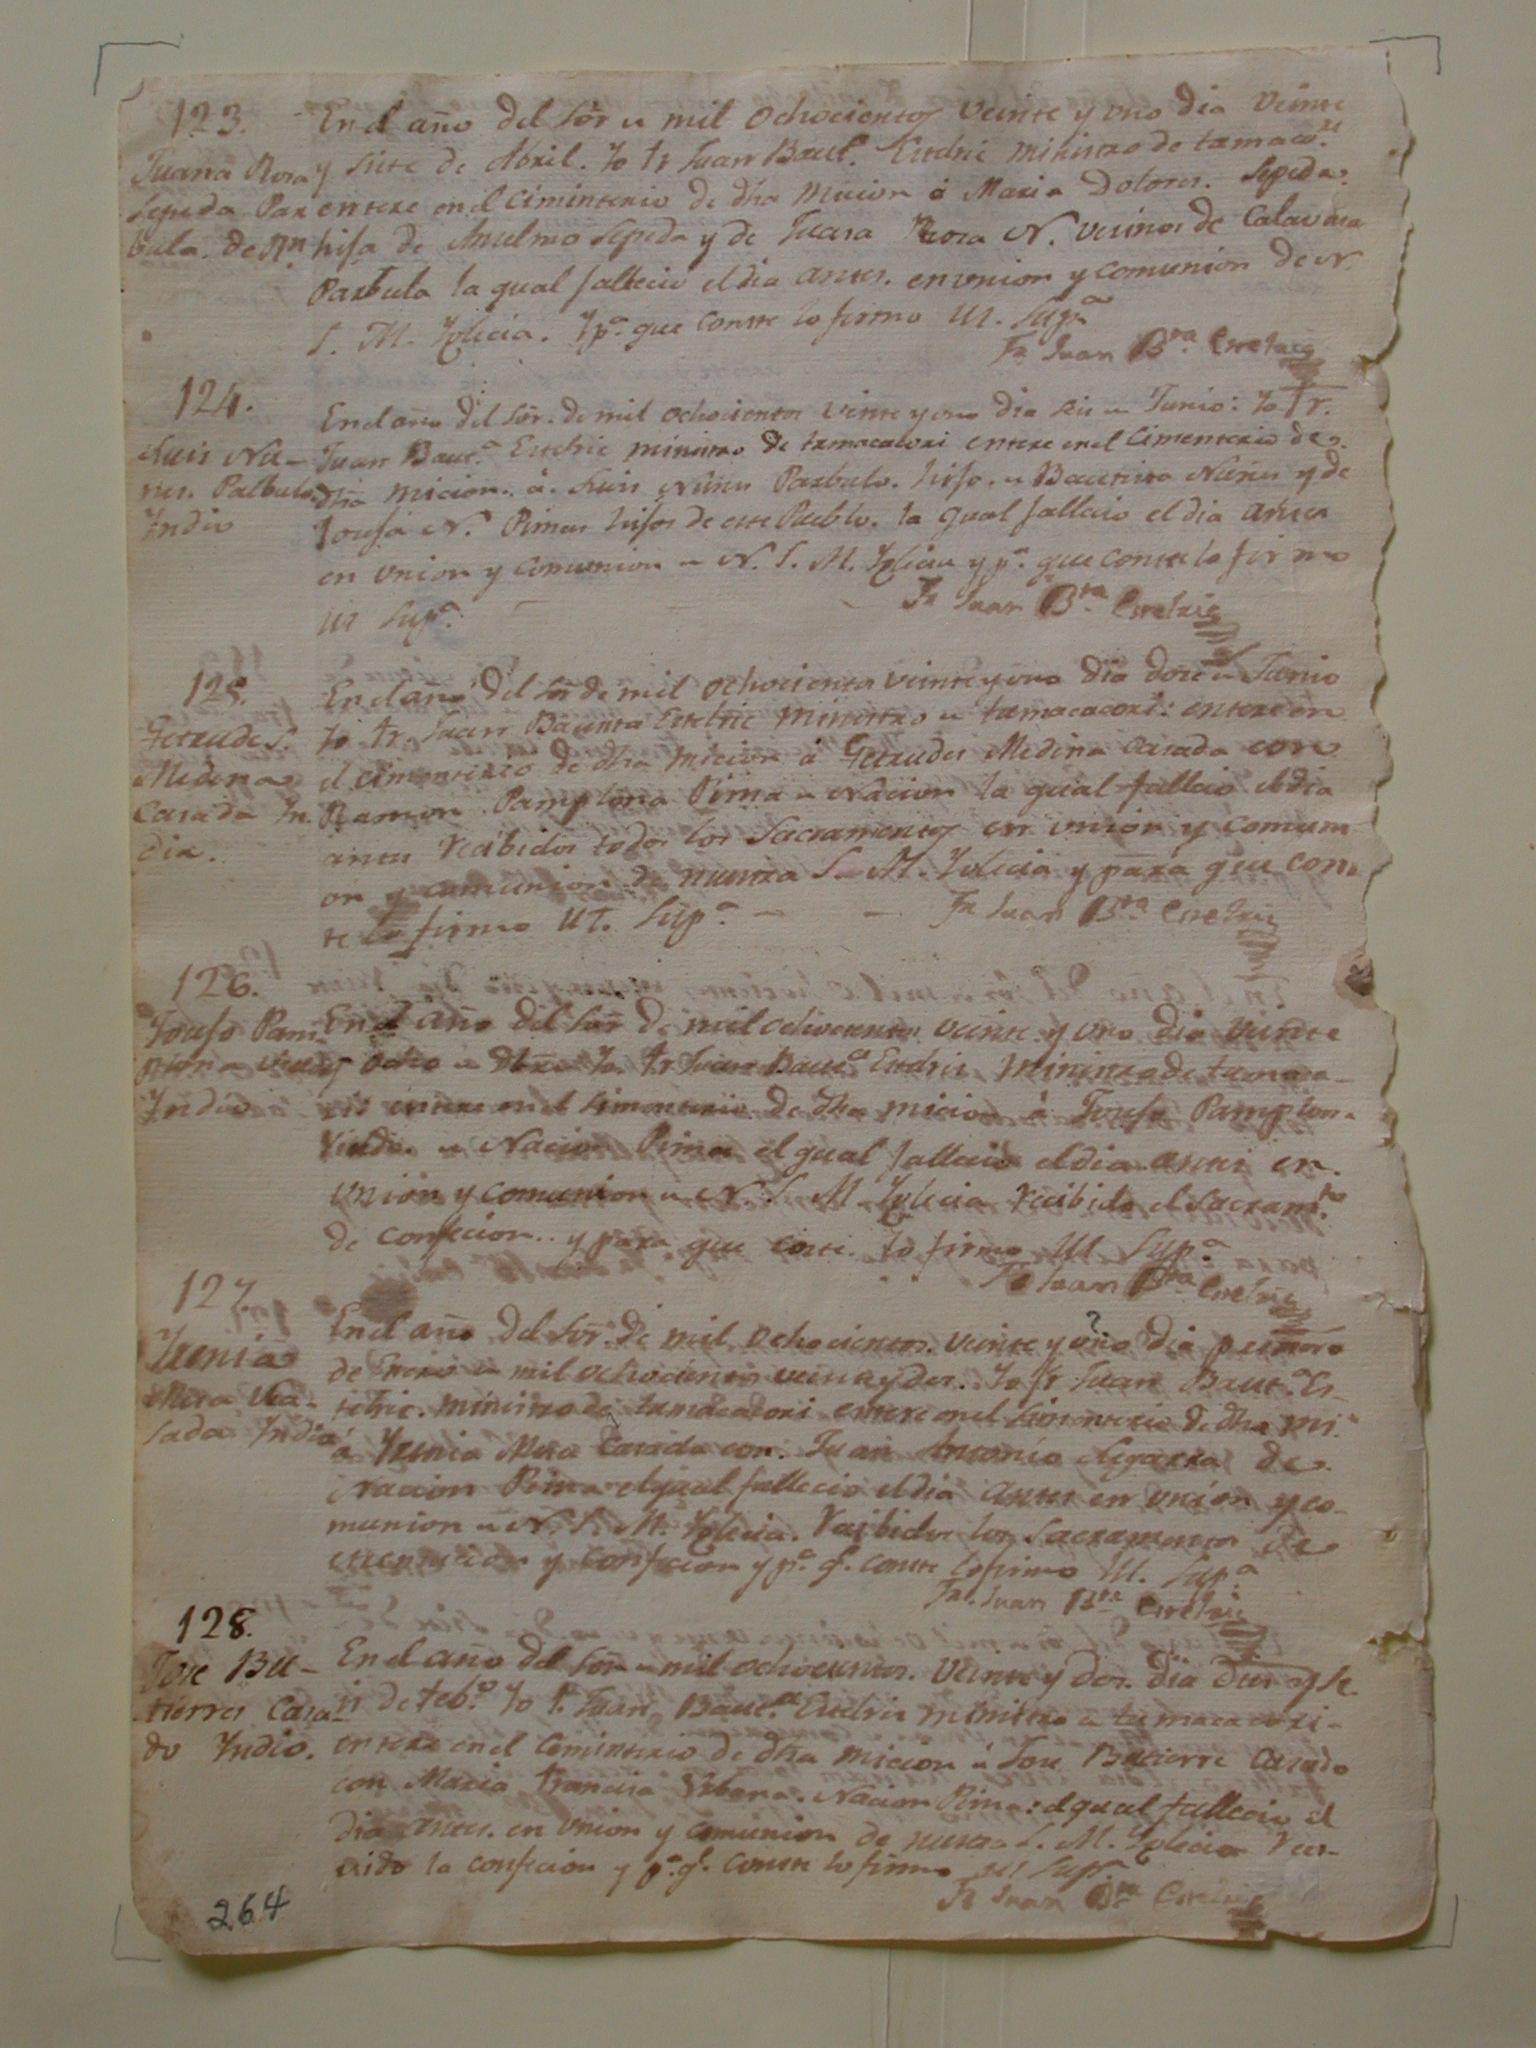 123.
Juana Rosa
Sepeda Par
bula. de Rn.
En el año del Sõr u mil Ochocientos veinte y uno dia veinte
y siete de Abril. Yo fr Juan Baut.a Estelric ministro de tamaco.ri
entere en el Ciminterio de dha micion â Maria Dolores. Sepeda.
hija de Anselmo Sepeda y de Juana Rosa N. vecinos de Calavasa
Parbula la qual fallecio el dia antes. en union y comunion de N.
S. M. Yglecia. Y p.a que conste lo firmo Ut. Sup.a
Fr Juan B.ta Estelric
124.
Luis Nu-
nes. Palbulo
Yndio
En el año del Sõr. de mil ochocientos veinte y uno dia seis u Junio: Yo Fr.
Juan Baut.a Estelric ministro de tumacacori entere en el Cimenterio de
dha micion. â. Luis Nuñes Parbulo. hijo. u Bautista Nuñes y de
Josefa N. Pimas hijos de este Pueblo. la qual fallecio el dia antes
en union y comunion u N. S. M. Yglecia y p.a que conste lo firmo
Ut Sup.a
Fr Juan B.ta Estelric
125.
Getrudes.
Medina
Casada Yn
dia.
En el año del Sõr de mil ochocientos veinte y uno dia dose u Junio
Yo fr. Juan Bautista Estelric ministro u tumacacori: entere en
el cimenterio de dha micion a Getrudes Medina casada con
Ramon Pamplona Pima u Nacion la qual fallecio el dia
antes recibidos todos los Sacramentos en union y comuni
on y comunion de nuestra S. M. Yglecia y para que cons
te lo firmo Ut. Sup.a
Fr Juan B.ta Estelric
126.
Josefo Pam
plona viudo
Yndio
En el año del Sõr de mil ochocientos veinte y uno dia veinte
y ocho u Yo fr Juan Baut.a Estelric ministro de tumaca
ri entere en el Simenterio de dha micion â Josefo Pamplona
Viudo. u Nacion Pima el qual fallecio el dia antes en.
union y comunion u N. S. M. Yglecia recibido el Sacram.to
de confecion.. y para que coste lo firmo Ut Sup.a
Fr Juan B.ta Estelric
127.
Yrenia
Mesa Ca-
sada Yndia
?
En el año del Sõr de mil ochocientos. veinte y uno dia primero
de Enero u mil ochocientos veinte y dos. Yo fr Juan Baut.a Es-
telric. ministro de tumacacori entere en el Simenterio de dha mi
â Yrenia Mesa Casada con. Juan Antonio Segarra de
Nacion Pima el qual fallecio el dia antes en union y co-
munion u N. S. M. Yglecia. recibidos los Sacramentos de
y confecion y p.a q. conste lo firmo Ut. Sup.a
Fr. Juan B.ta Estelric
128.
Jose Bu-
tierres Casa-
do Yndio.
En el año del Sõr u mil ochocientos. veinte y dos. dia dies y se
is de Feb.o Yo f. Juan Baut.a Estelric ministro u tumacacori-
entere en el Ceminterio de dha micion â Jose Butierre Casado
con Maria Francisca Urbana. Nacion Pima: el qual fallecio el
dia antes. en union y comunion de nuestra S. M. Yglecia reci-
vido la confecion y p.a q. conste lo firmo Ut Sup.a
Fr Juan B.ta Estelric
264